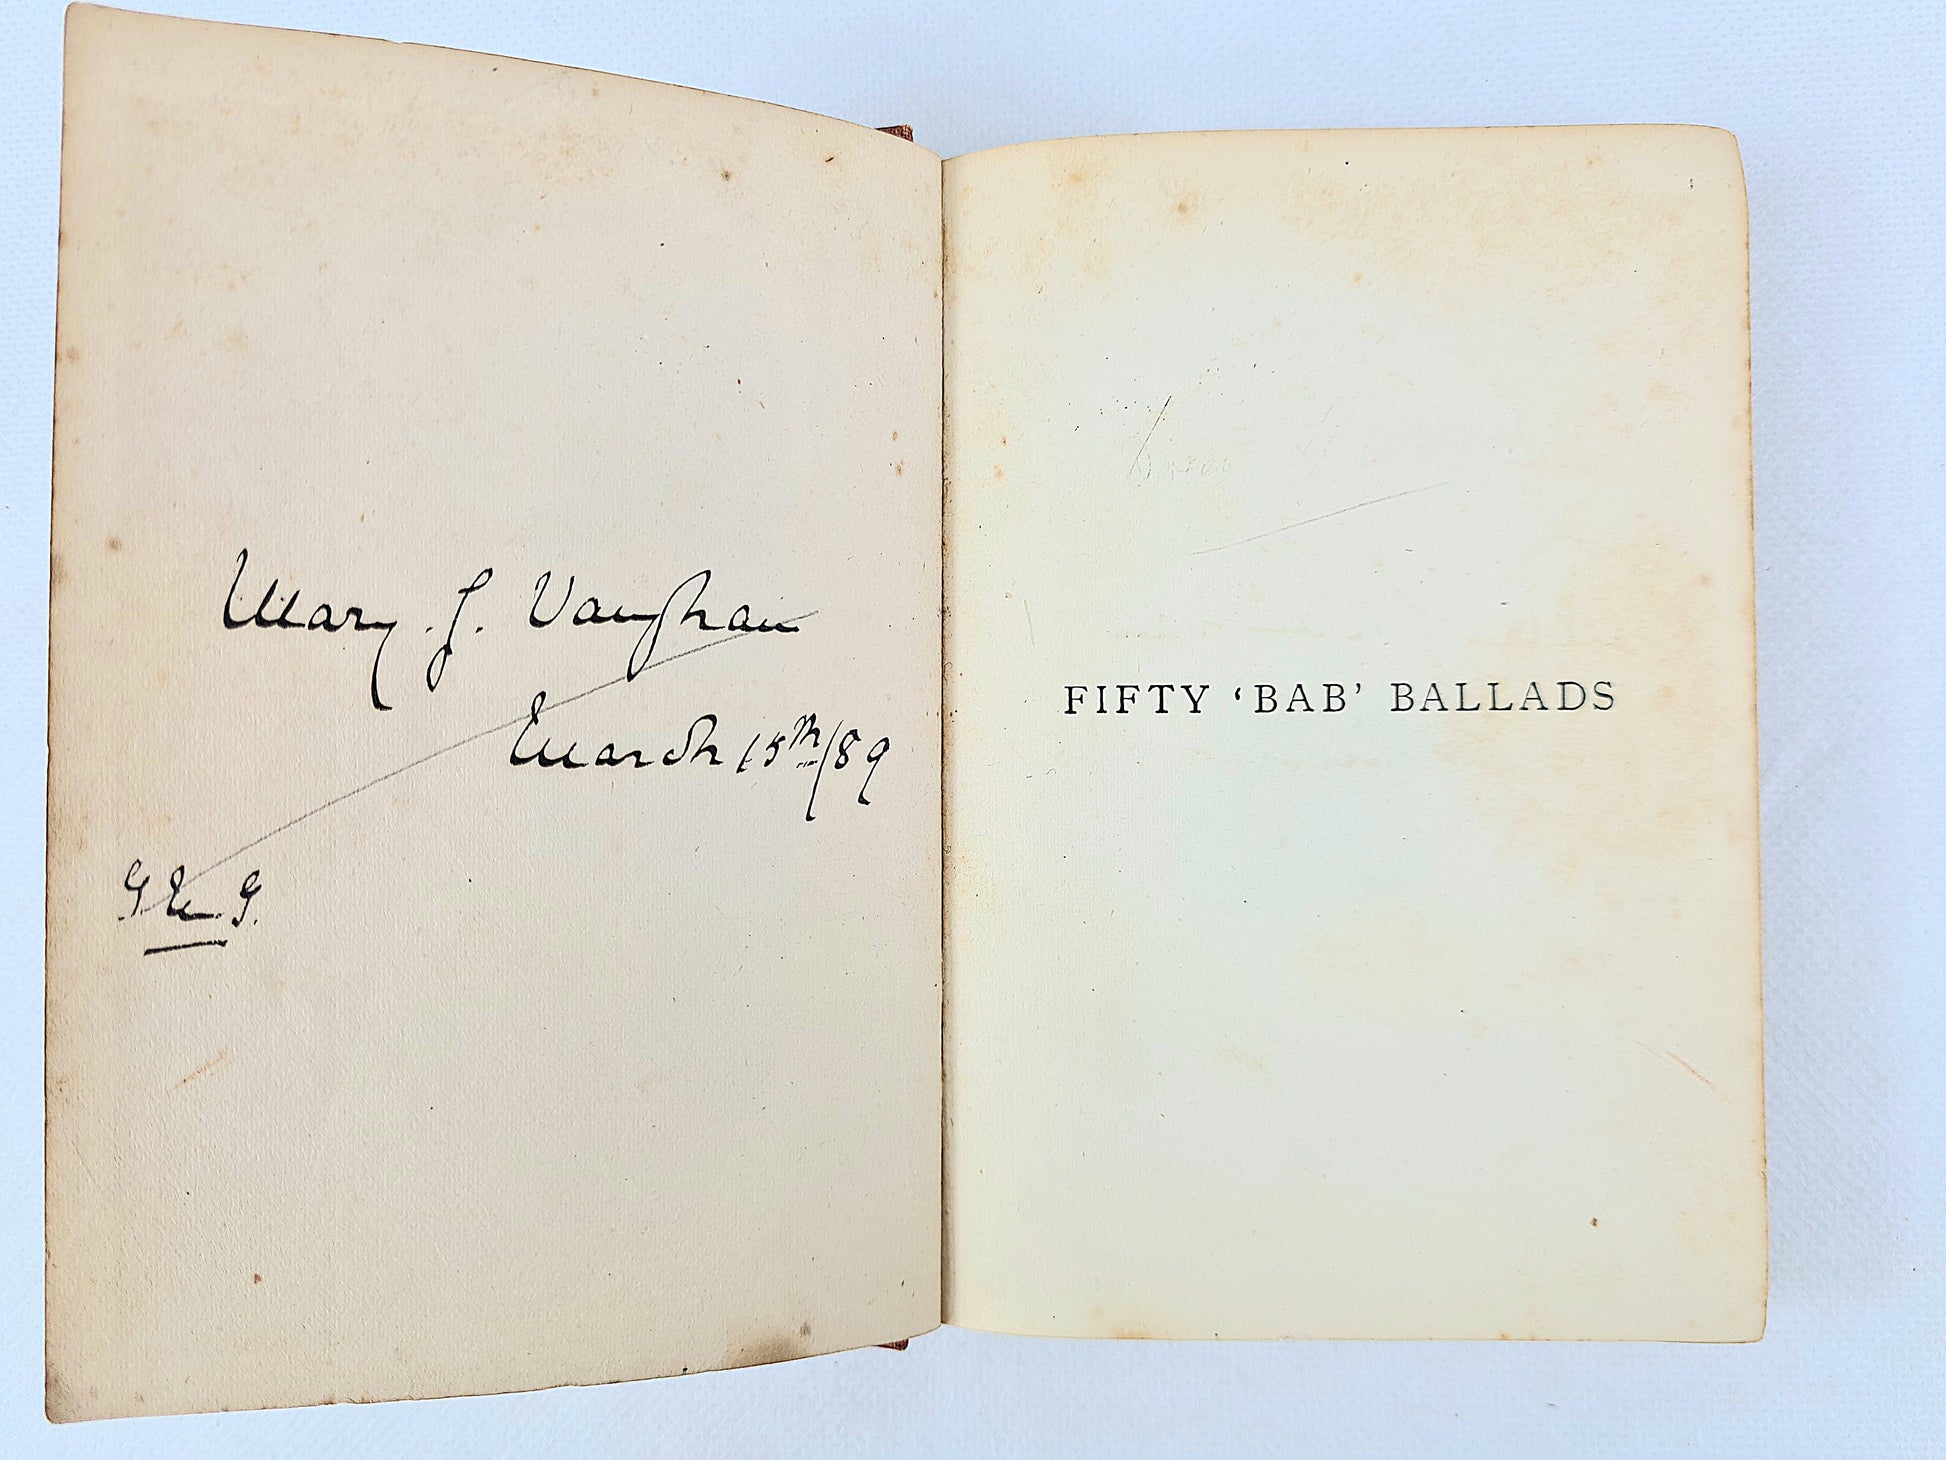 Mary. J. Vaughan
March 15th/89
FIFTY 'BAB' BALLADS